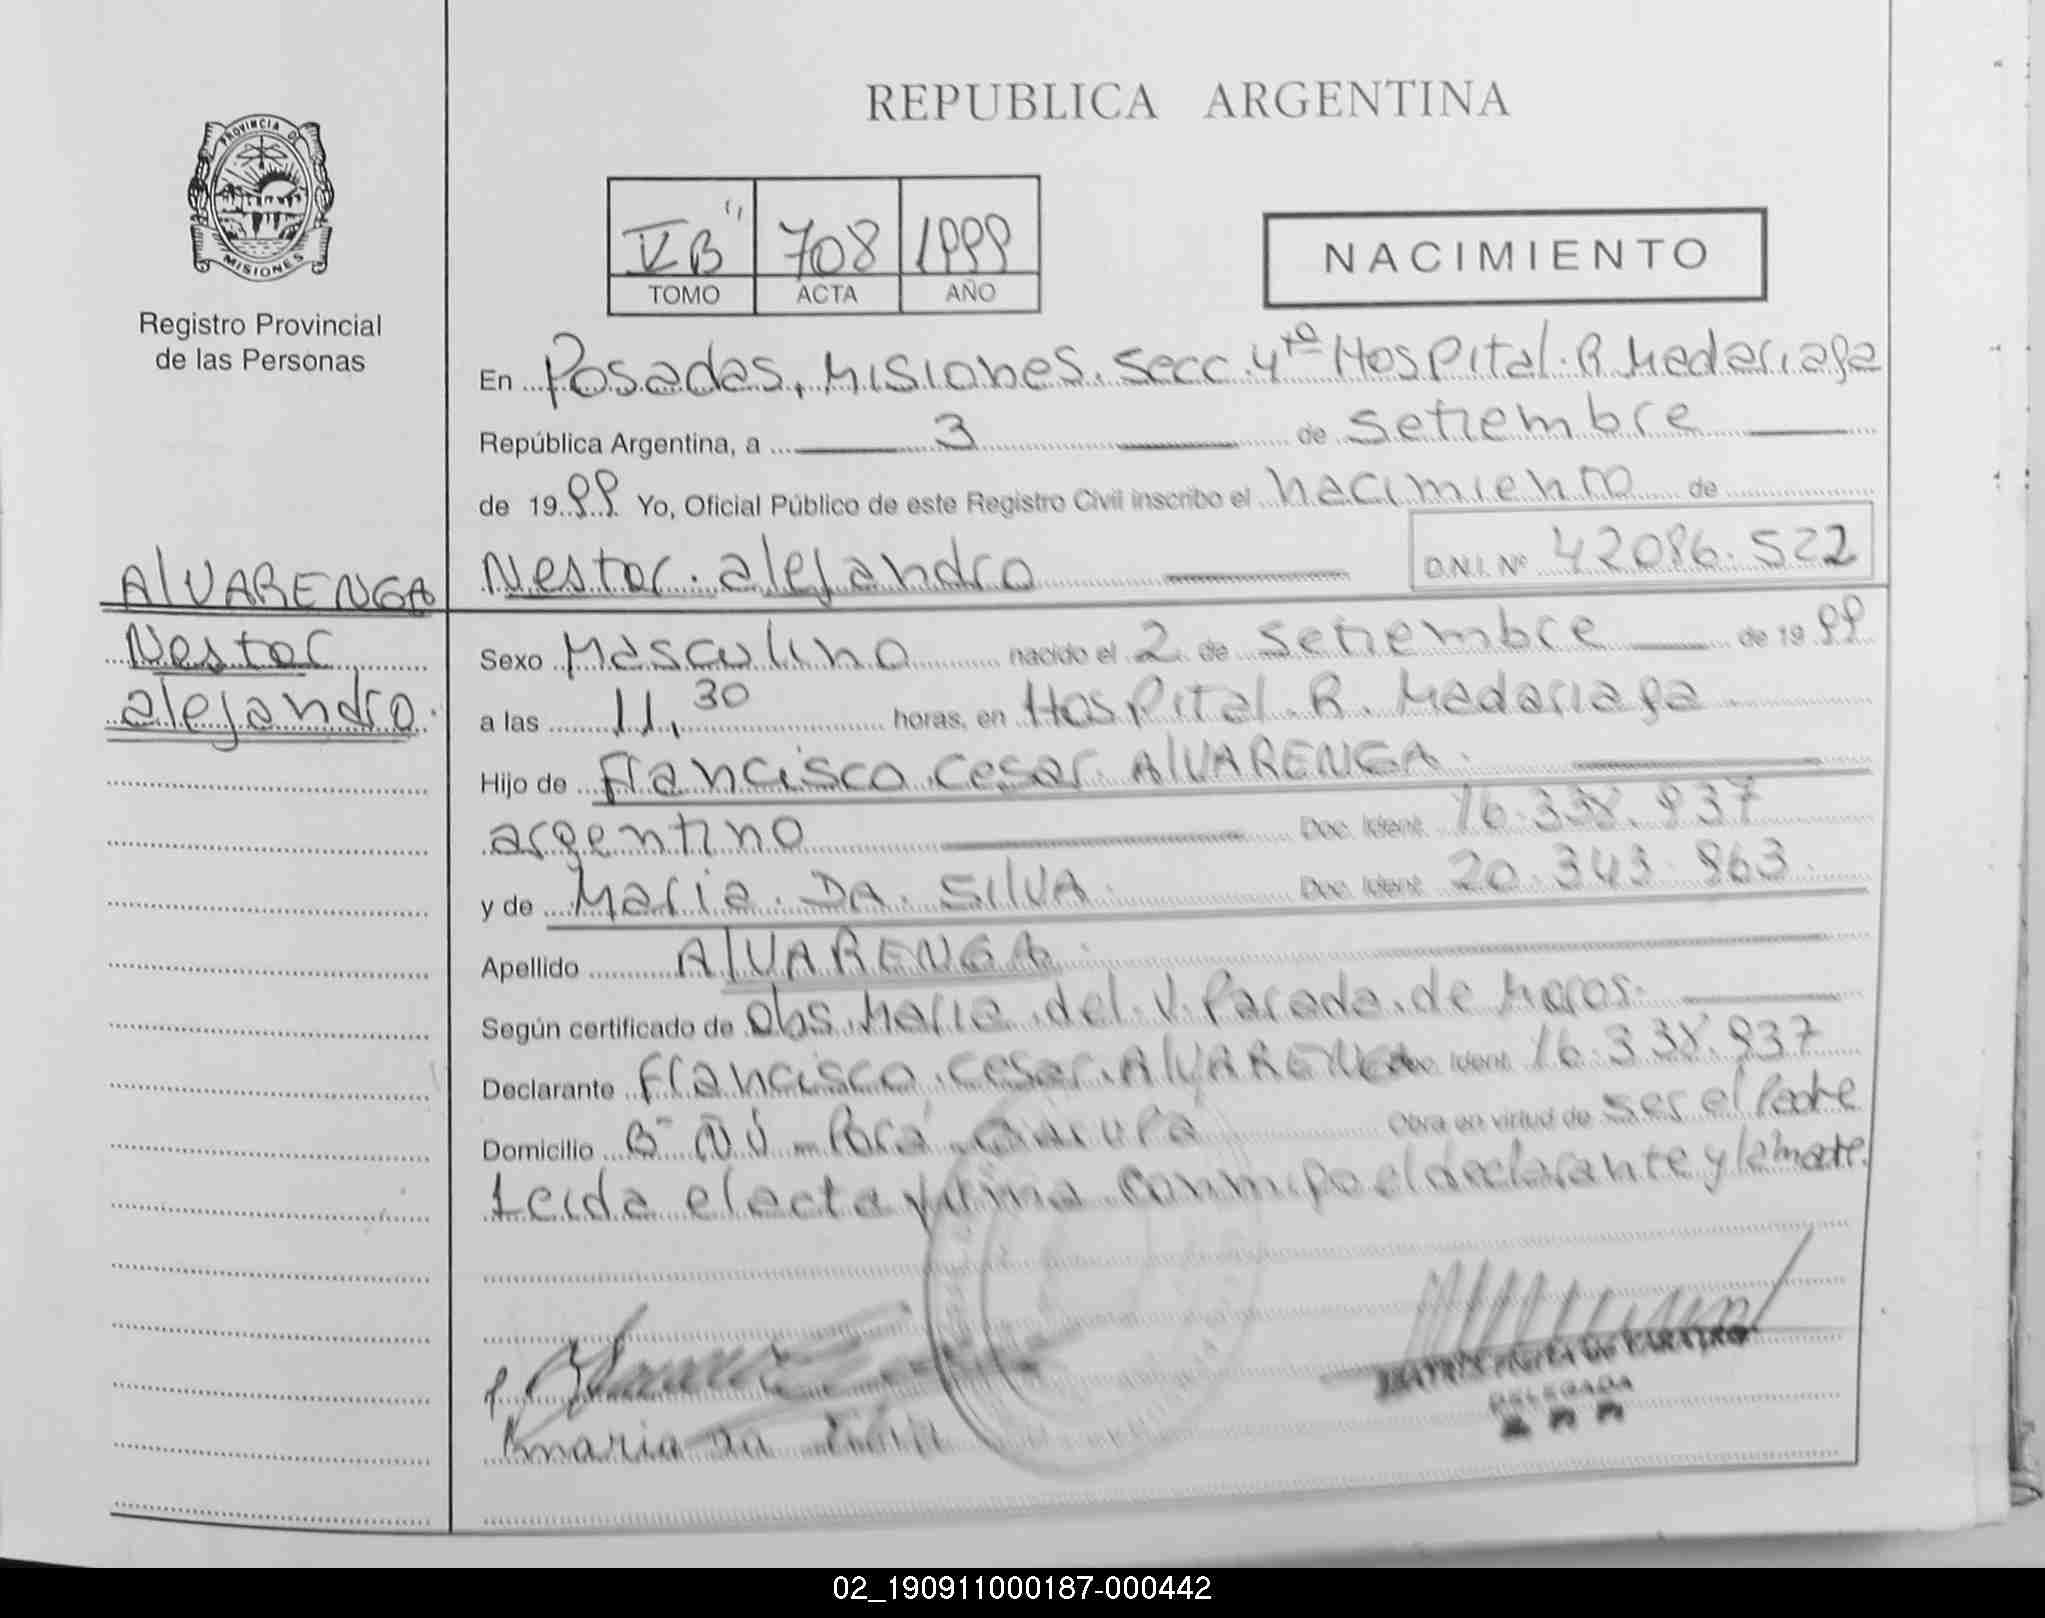 REPUBLICA ARGENTINA
PROVINCIA DE
MISIONES
Registro Provincial
de las Personas
V B" 708 1999
TOMO ACTA AÑO
NACIMIENTO
En Posadas, Misiones. Secc. 4ta Hospital. R. Madariaga
República Argentina, a 3 de setiembre
de 1999 Yo, Oficial Público de este Registro Civil inscribo el nacimiento de
Nestor. alejandro D.N.I. Nº 42086.522
AlVARENGA
Nestor
alejandro.
Sexo Masculino nacido el 2 de setiembre de 1999
a las 11,30 horas, en Hospital. R. Madariaga
Hijo de Francisco. Cesar. AlVARENGA.
argentino Doc. Ident. 16.338.937
y de Maria. DA. SIlVA. Doc. Ident. 20.343.863.
Apellido AlVARENGA.
Según certificado de Obs. Maria. del. V. Parada. de
Declarante Francisco. Cesar. AlVARENGA Doc. Ident. 16.338.937
Domicilio B- Ñú - Porá Garupá Obra en virtud de ser el Padre
Leida el acta firma conmigo el declarante y la madre.
maria da
DELEGADA
02_190911000187-000442